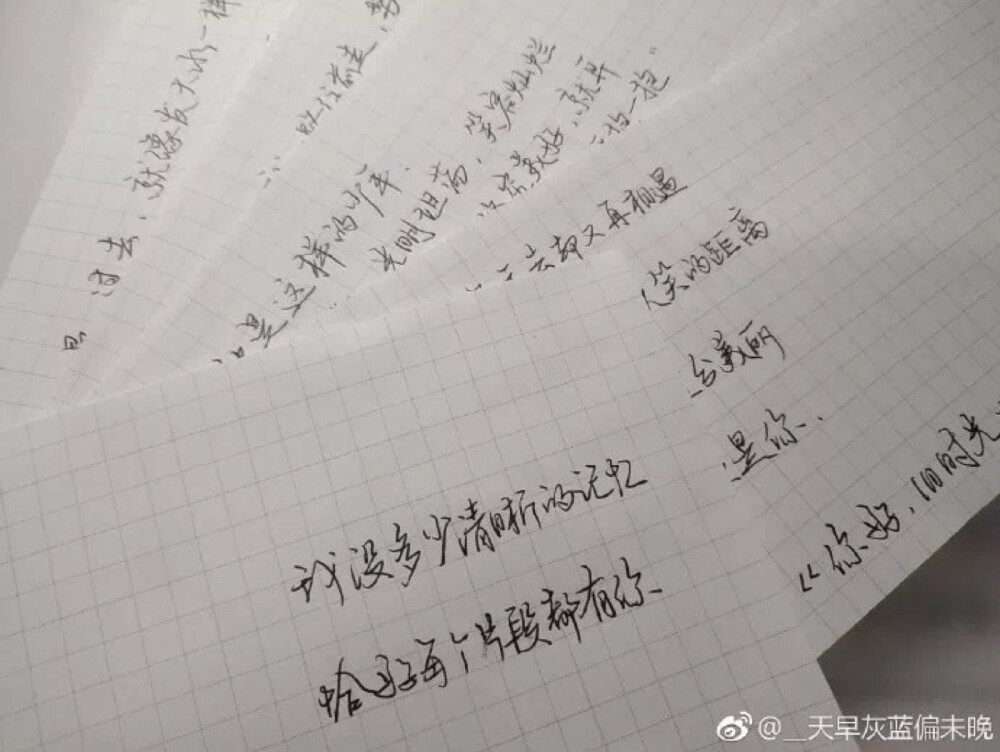 就像发大水一样
过去,
是这样的少年,
光明坦荡,笑容灿烂
次宗教好,就再
抱一抱"
去却又再相遇
笑的距离
台美丽
是你.
"你好,旧时光
我没多少清晰的记忆
恰好每个片段都有你、
@__天早灰蓝偏未晚